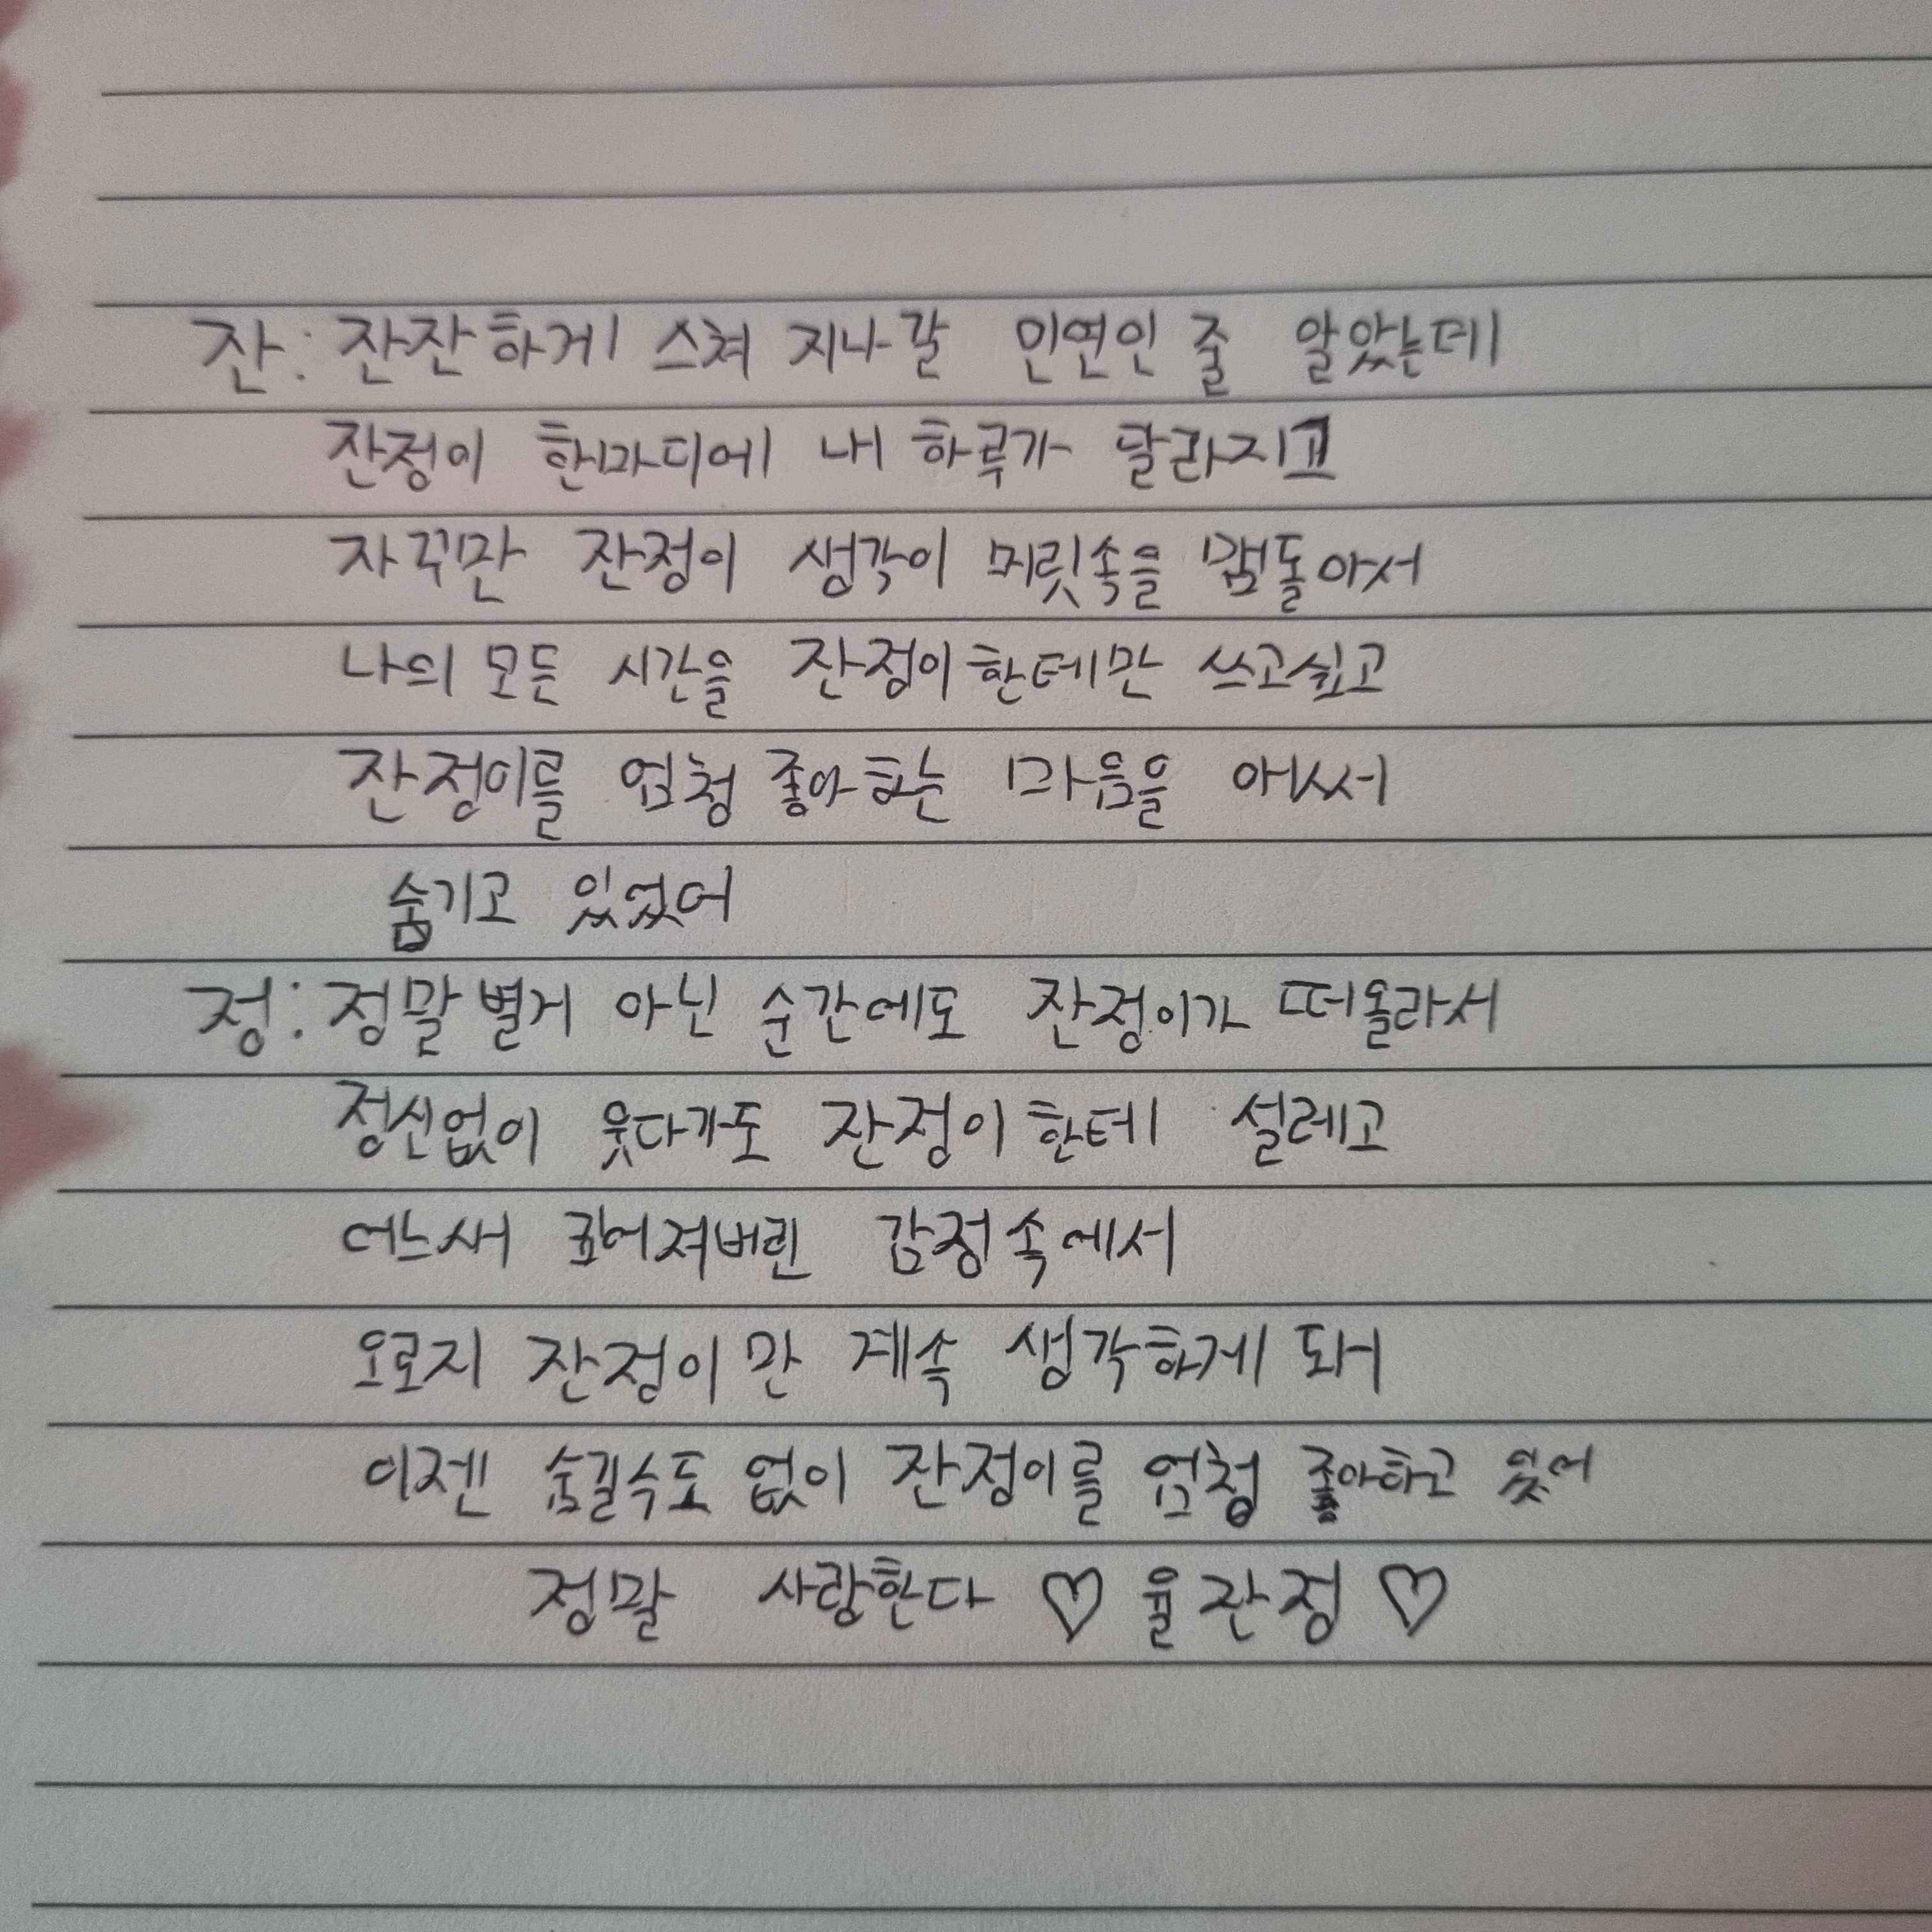 잔: 잔잔하게 스쳐 지나갈 인연인 줄 알았는데
잔정이 한마디에 내 하루가 달라지고
자꾸만 잔정이 생각이 머릿속을 맴돌아서
나의 모든 시간을 잔정이한테만 쓰고싶고
잔정이를 엄청 좋아하는 마음을 애써
숨기고 있었어
정: 정말 별거 아닌 순간에도 잔정이가 떠올라서
정신없이 웃다가도 잔정이한테 설레고
어느새 깊어져버린 감정 속에서
오로지 잔정이만 계속 생각하게 돼
이젠 숨길수도 없이 잔정이를 엄청 좋아하고 있어
정말 사랑한다 ♡ 율잔정 ♡